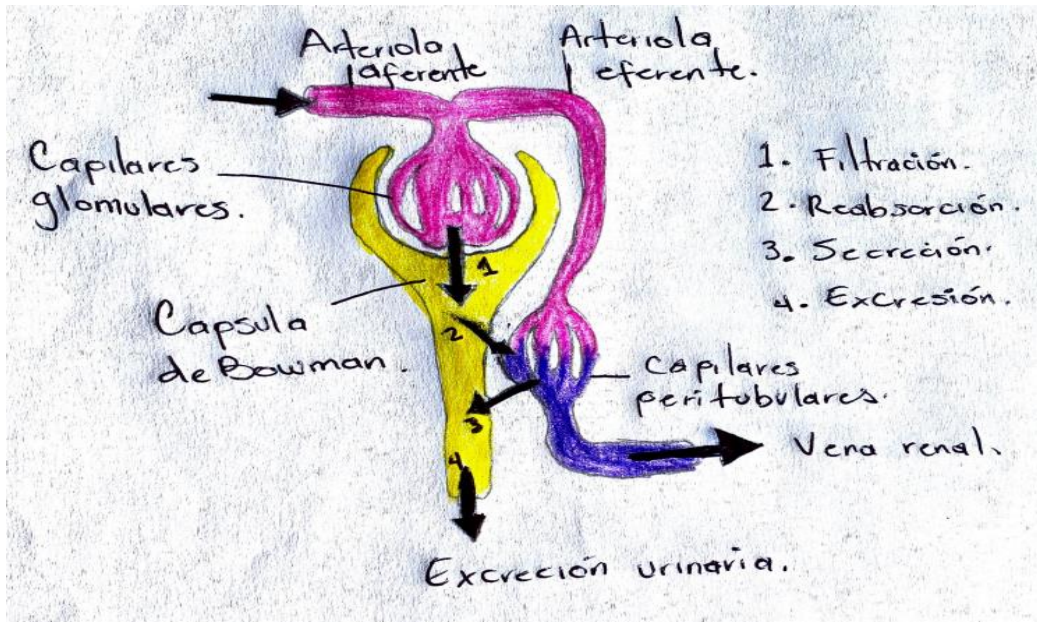 Arteriola
aferente
Arteriola
eferente.
Capilares
glomulares.
1. Filtración.
2. Reabsorción.
3. Secreción.
4. Excresión.
1
2
3
4
Capsula
de Bowman.
Capilares
peritubulares.
Vena renal.
Excreción urinaria.